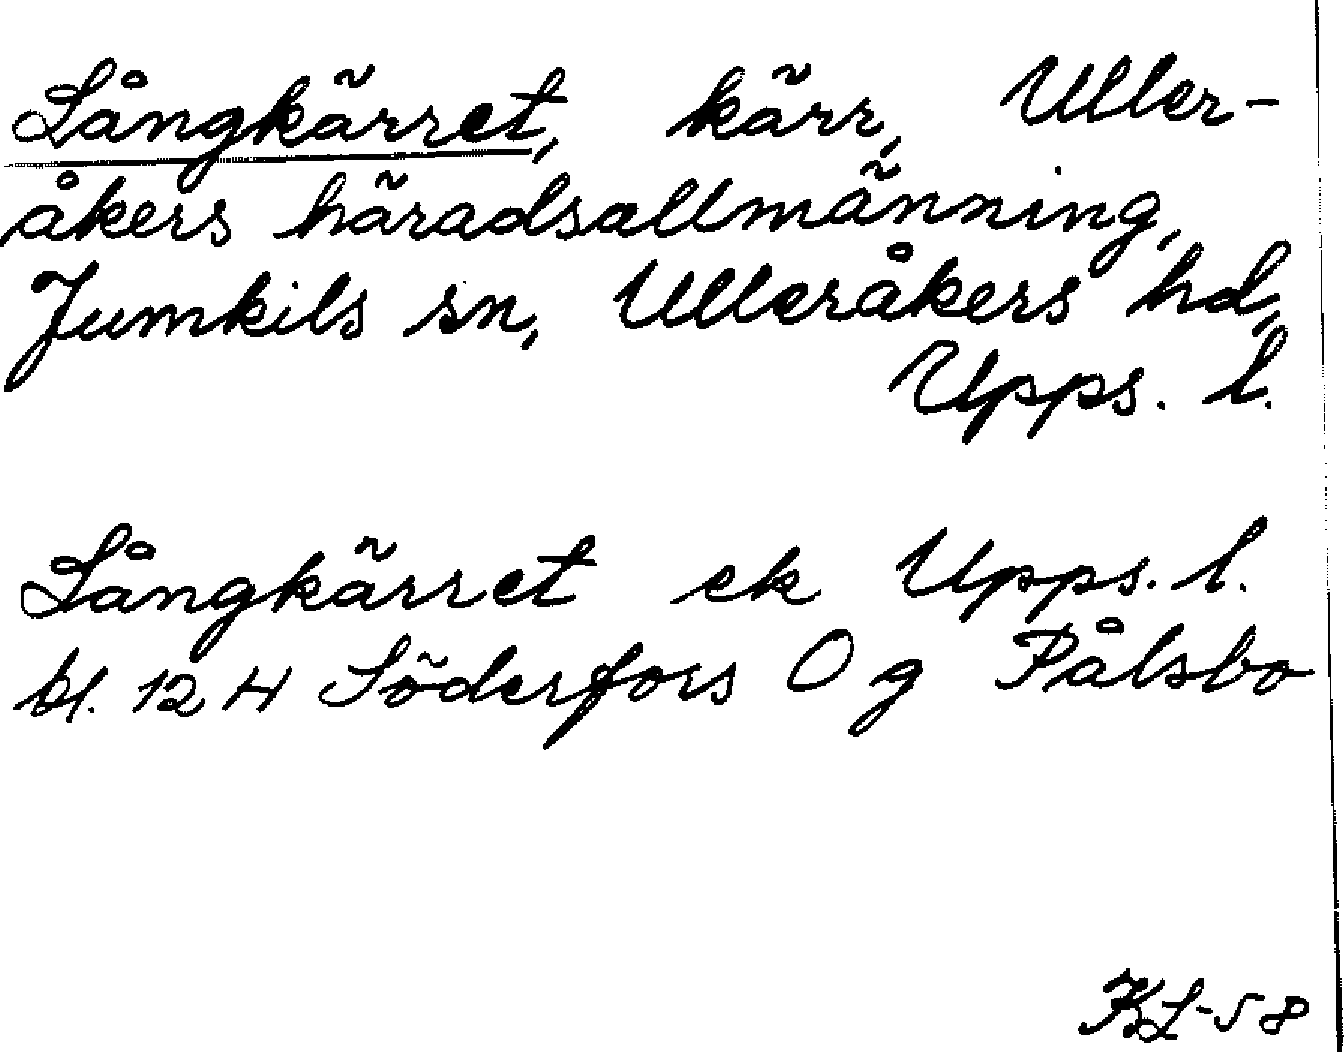 Långkärret, kärr, Uller-
åkers häradsallmänning,
Jumkils sn, Ulleråkers hd,
Upps. l.
Långkärret ek Upps. l.
bl. 12 H Söderfors O g Pålsbo
KL-58